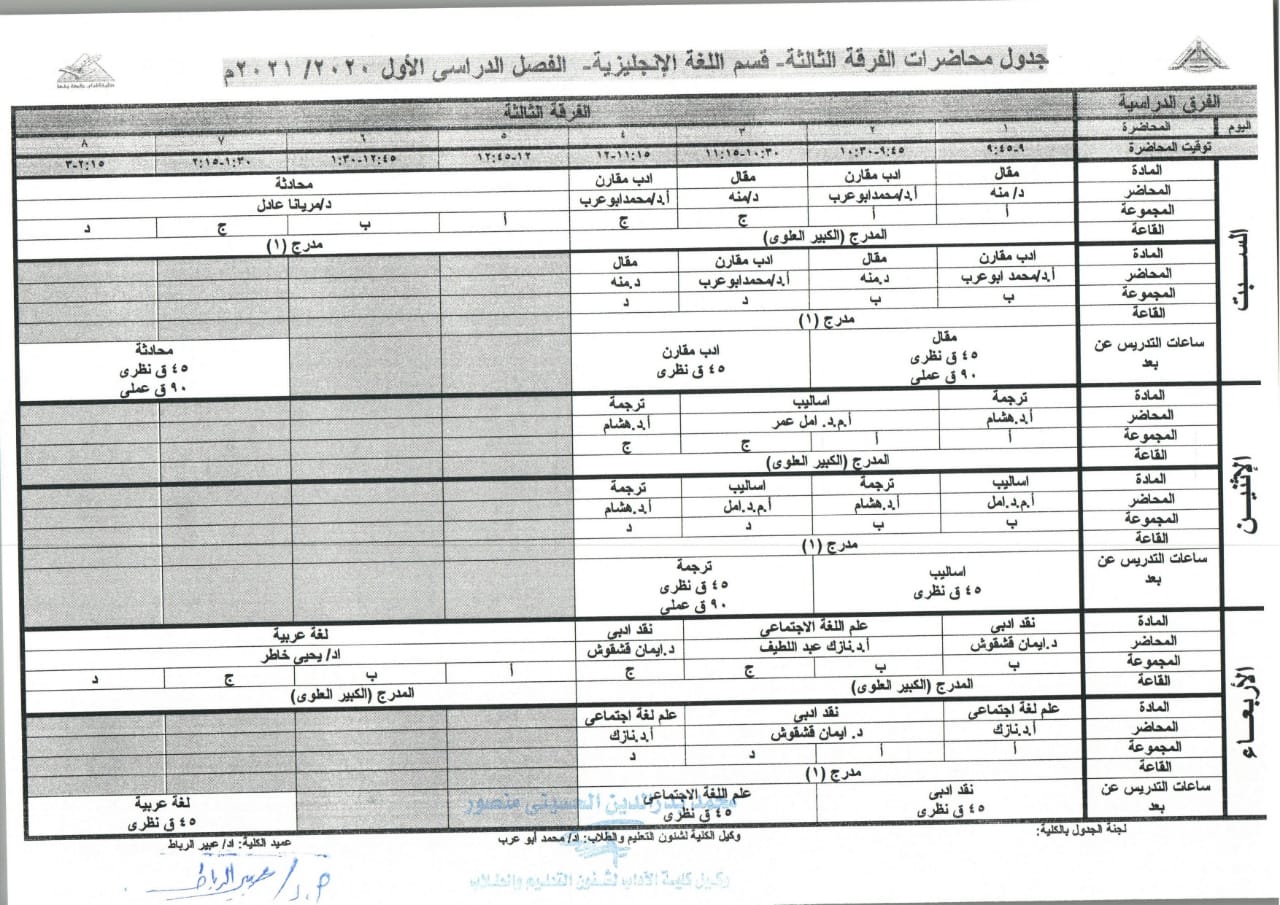 جدول محاضرات الفرقة الثالثة- قسم اللغة الإنجليزية- الفصل الدراسى الأول ٢٠٢٠/ ٢٠٢١م
الفرق الدراسية الفرقة الثالثة
اليوم المحاضرة ١ ٢ ٣ ٤ ٥ ٦ ٧ ٨
توقيت المحاضرة ٩-٩:٤٥ ٩:٤٥-١٠:٣٠ ١٠:٣٠-١١:١٥ ١١:١٥-١٢ ١٢-١٢:٤٥ ١٢:٤٥-١:٣٠ ١:٣٠-٢:١٥ ٢:١٥-٣
السبت
المادة مقال ادب مقارن مقال ادب مقارن محادثة
المحاضر د/ منه أ.د/محمدابوعرب د/منه أ.د/محمدابوعرب د/مريانا عادل
المجموعة أ أ ج ج أ ب ج د
القاعة المدرج (الكبير العلوى) مدرج (١)
المادة ادب مقارن مقال ادب مقارن مقال
المحاضر أ.د/محمد ابوعرب د.منه أ.د/محمدابوعرب د.منه
المجموعة ب ب د د
القاعة مدرج (١)
ساعات التدريس عن بعد مقال ادب مقارن محادثة
٤٥ ق نظرى ٤٥ ق نظرى ٤٥ ق نظرى
٩٠ ق عملى ٩٠ ق عملى
الإثنين
المادة ترجمة اساليب ترجمة
المحاضر أ.د.هشام أ.م.د. امل عمر أ.د.هشام
المجموعة أ أ ج ج
القاعة المدرج (الكبير العلوى)
المادة اساليب ترجمة اساليب ترجمة
المحاضر أ.م.د.امل أ.د.هشام أ.م.د.امل أ.د.هشام
المجموعة ب ب د د
القاعة مدرج (١)
ساعات التدريس عن بعد اساليب ترجمة
٤٥ ق نظرى ٤٥ ق نظرى
٩٠ ق عملى
الأربعاء
المادة نقد ادبى علم اللغة الاجتماعى نقد ادبى لغة عربية
المحاضر د.ايمان قشقوش أ.د.نازك عبد اللطيف د.ايمان قشقوش اد/ يحيى خاطر
المجموعة ب ب ج ج أ ب ج د
القاعة المدرج (الكبير العلوى) المدرج (الكبير العلوى)
المادة علم لغة اجتماعى نقد ادبى علم لغة اجتماعى
المحاضر أ.د.نازك د. ايمان قشقوش أ.د.نازك
المجموعة أ أ د د
القاعة مدرج (١)
ساعات التدريس عن بعد نقد ادبى علم اللغة الاجتماعى لغة عربية
٤٥ ق نظرى ٤٥ ق نظرى ٤٥ ق نظرى
محمد بدر الدين الحسينى منصور
لجنة الجدول بالكلية: وكيل الكلية لشئون التعليم والطلاب: اد/ محمد أبو عرب عميد الكلية: اد/ عبير الرباط
ا.د/ عبير الرباط
وكيل كلية الآداب لشئون التعليم والطلاب